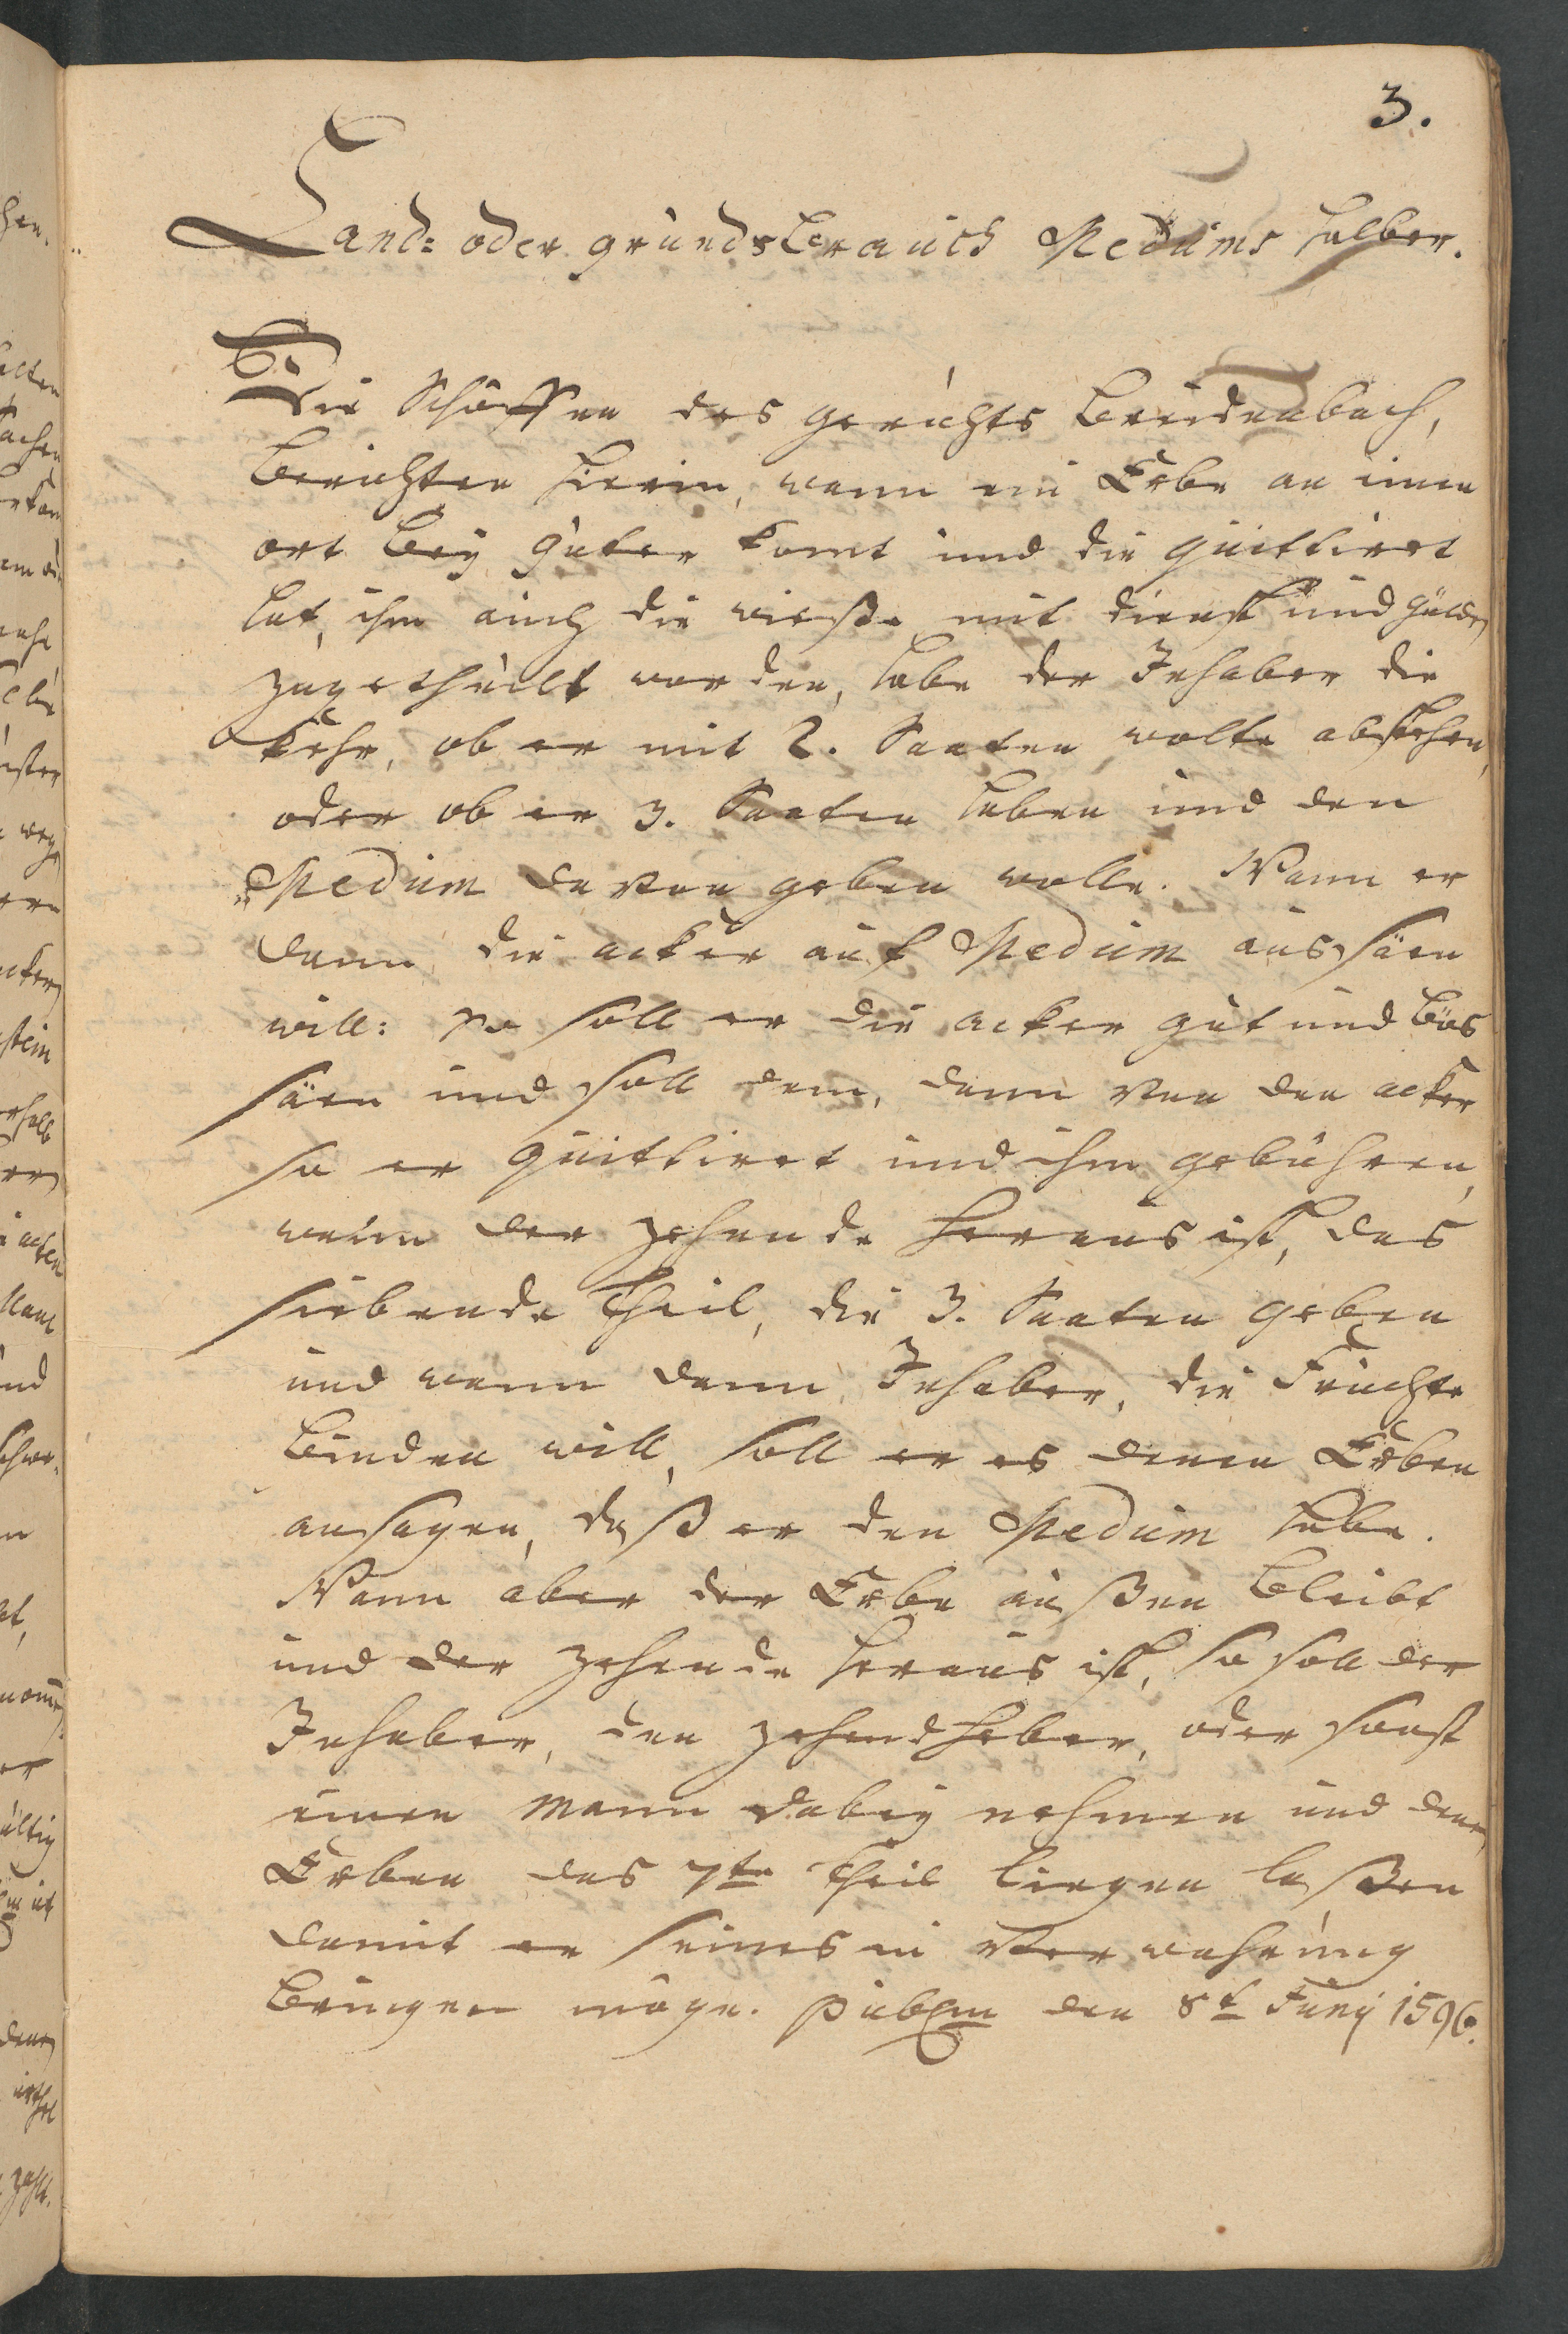 3.
Land= oder grunds brauch Medums halber.
Die Schöffen des gerichts Breidenbach,
berichten hierin, wann ein Erbe an einen
ort bey güter komt und die quittiret
hat, ihm auch die wieße mit dienst und gülden
zugetheilt worden, habe der Inhaber die
Kehr, ob er mit 2. Saaten wolte abstehen,
oder ob er 3. Saaten haben und den
Medum davon geben wolle. Wann er
dann die acker auf Medum aussäen
will: so soll er die acker gut und bös
säen und soll dem, dann von den acker
so er quittiret und ihm gebühren,
wann der zehende heraus ist, das
siebende theil, die 3. Saaten geben
und wann dann Inhaber, die Früchte
binden will, soll er es denen Erben
ansagen, daß er den Medum hebe.
Wann aber der Erbe außen bleibt
und der zehende heraus ist, so soll der
Inhaber, den zehendheber, oder sonst
einen Mann dabey nehmen und denen
Erben das 7te theil liegen laßen
damit er seines in Verwahrung
bringen möge. den 8t Juny 1596.